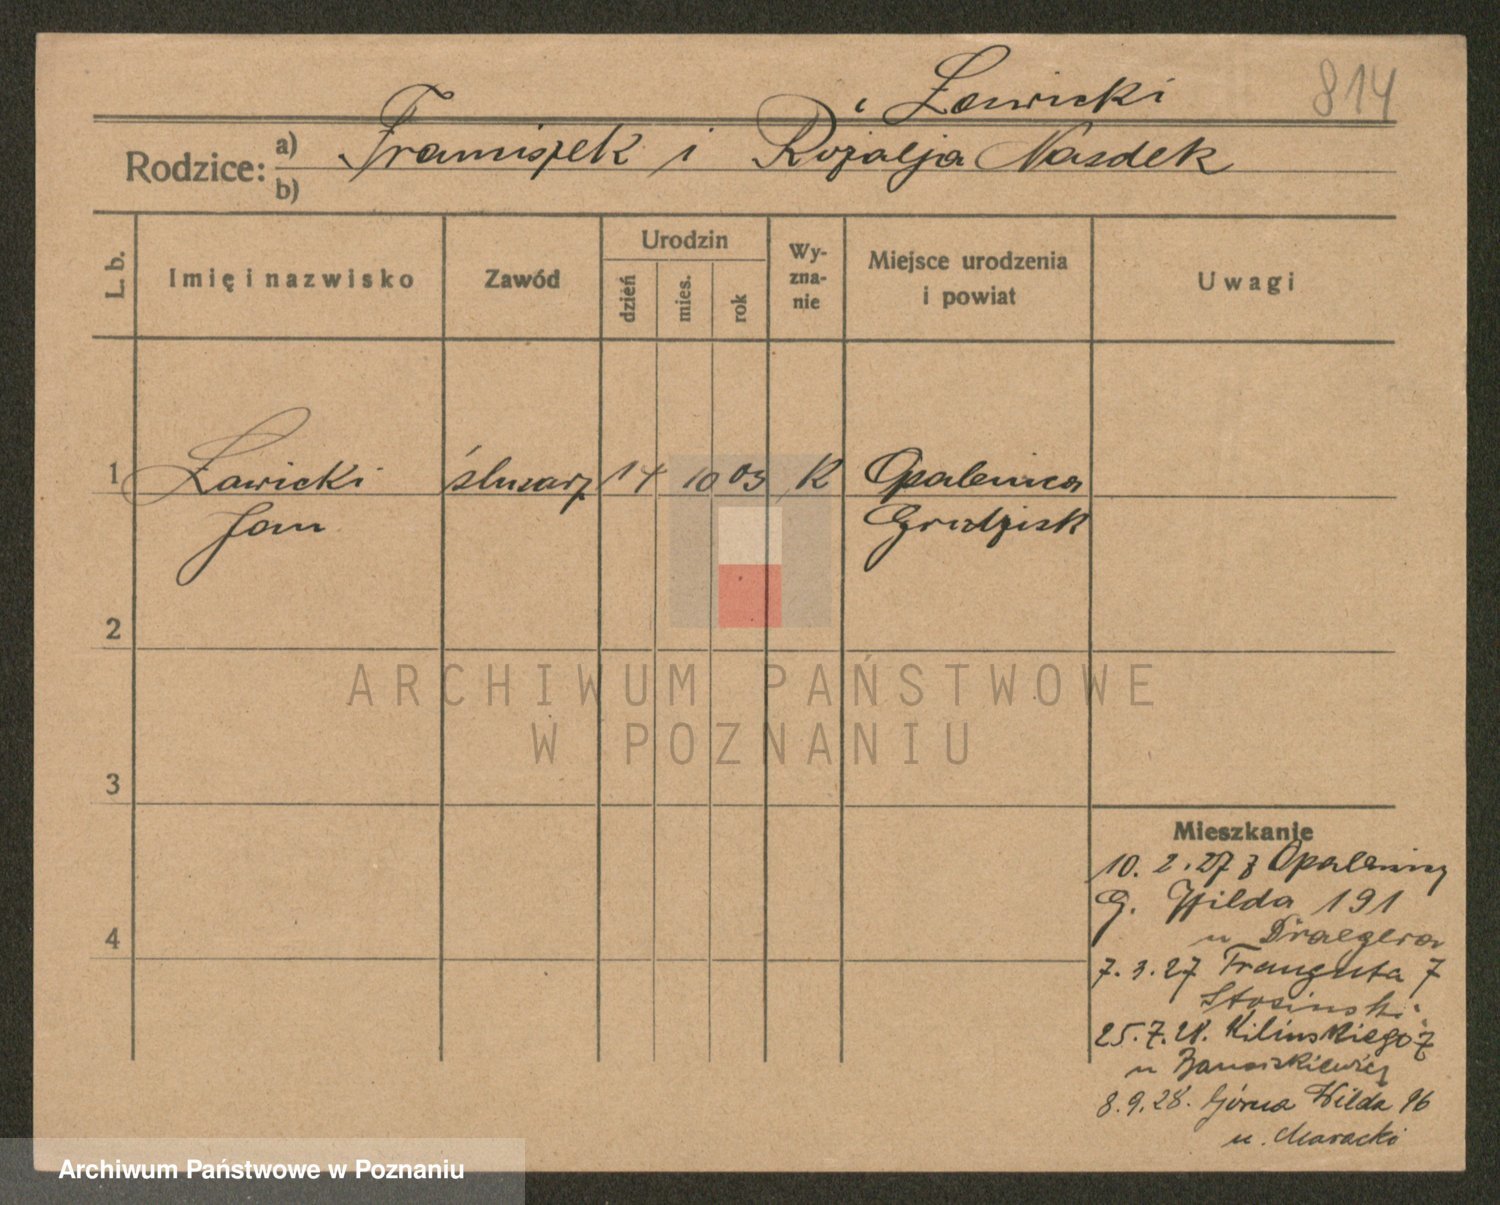 Ławicki
814
Rodzice: a) Franciszek i Rozalja Nasdek
b)
L. b.
Imię i nazwisko
Zawód
Urodzin
dzień
mies.
rok
Wy-
zna-
nie
Miejsce urodzenia
i powiat
Uwagi
1 Ławicki ślusarz 14 10 03 K Opalenica
Jan Grodzisk
2
3
4
ARCHIWUM PAŃSTWOWE
W POZNANIU
Mieszkanie
10. 2. 27 z Opalenicy
G. Wilda 191
u Draegera
7. 3. 27 Traugutta 7
25. 7. 28. Kilińskiego
u
8. 9. 28. Górna Wilda 96
u.
Archiwum Państwowe w Poznaniu